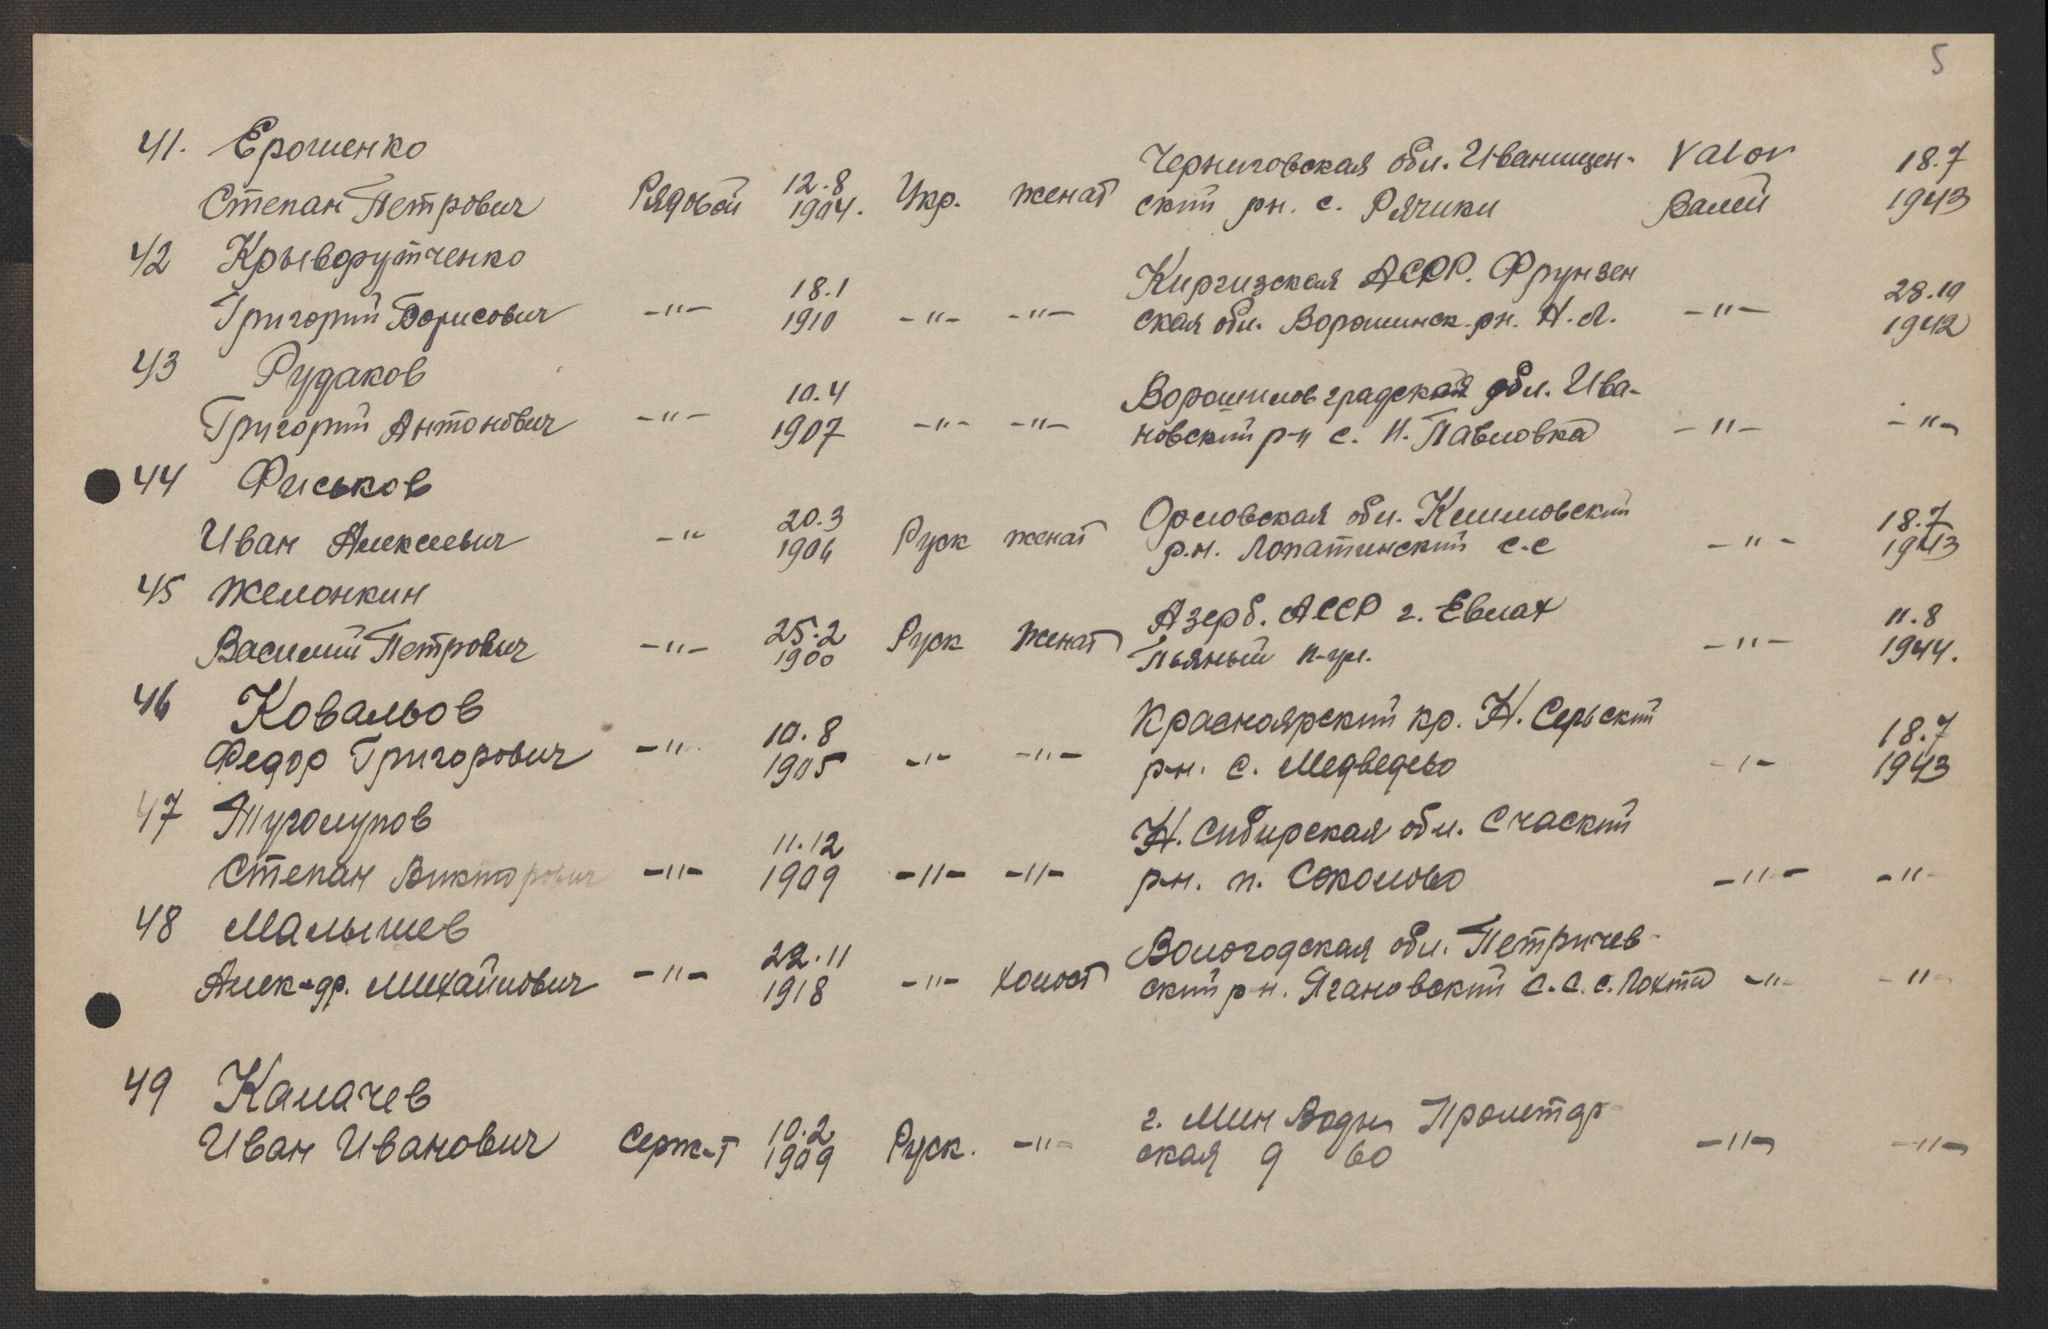 5
41. Ерошенко Черниговская обл. Иваницен- Valor 18.7
Степан Петрович Рядовой 12.8 1904. Укр. женат ский рн. с. Рячики Валей 1943
42 Крыворутченко Киргизская АССР. Фрунзен 28.10
Григорий Борисович -"- 18.1 1910 -"- -"- ская обл. Ворошинск. рн. Н.Л. -"- 1942
43 Рудаков Ворошиловградская обл. Ива-
Григорий Антонович -"- 10.4 1907 -"- -"- новский р-н с. Н. Павловка -"- -"-
44 Фиськов Орловская обл. Климовский 18.7
Иван Алексеевич -" 20.3 1906 Руск женат р.н. Лопатинский с.с -"- 1943
45 Желонкин Азерб. АССР г. Евлах 11.8
Василий Петрович -"- 25.2 1900 Руск женат Пьяный п-ул. -"- 1944.
46 Ковальов Красноярский кр. Н. Сельский 18.7
Федор Григорович -"- 10.8 1905 -"- -"- р-н. с. Медведево -"- 1943
47 Туголупов Н. Сибирская обл. Счаский
Степан Викторович -"- 11.12 1909 -"- -"- р-н. п. Соколово -"- -"-
48 Малышев Вологодская обл. Петричев-
Алек-др. Михайлович -"- 22.11 1918 -"- холост ский р-н. Ягановский С.С. с. Лохта -"- -"-
49 Калачев г. Мин Воды Пролетар-
Иван Иванович Серж-т 10.2 1909 Руск. -"- ская 9 60 -"- -"-